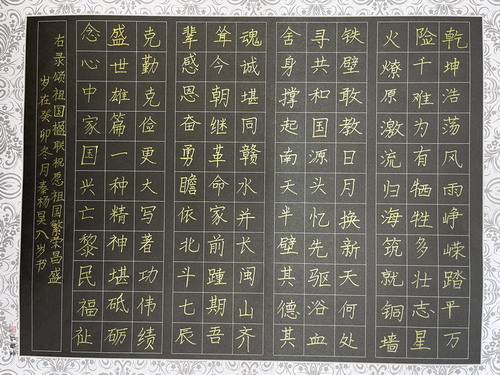 乾坤浩荡风雨峥嵘踏平万
险千难为有牺牲多壮志星
火燎原激流归海筑就铜墙
铁壁敢教日月换新天何处
寻共和国源头忆先驱浴血
舍身撑起南天半壁其德其
魂诚堪同赣水并长闽山齐
耸今朝继革命家前踵期吾
辈感恩奋勇瞻依北斗七辰
克勤克俭更大写著功伟绩
盛世雄篇一种精神堪砥砺
念心中家国兴亡黎民福祉
右录颂祖国楹联祝愿祖国繁荣昌盛
岁在癸卯冬月秦杨昊八岁书